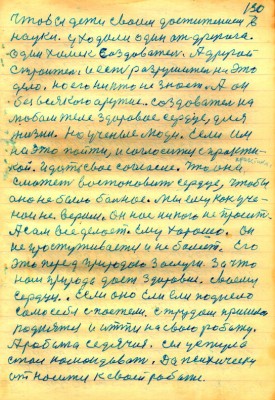 130
чтобы дети своим достижением в
науки. уходили один от другого.
один хочет создавать. А другой
строитель. и есть разрушитель на это
дело, но его никто не знает. А он
без всякого оружие. создаватель на
любом теле здоровое сердце, для
жизни. Но ученые люди. Если им
на это пойти, и согласиться с практи-
кой. и дать свое согласие. Что они
сможет востоновить сердце, чтобы
оно не было больное. Мы ему как уче-
ной не верим. он нас никого не просит.
А сам все делает. Ему хорошо. он
не простуживается и не болеет. Его
это перед природою заслуги. За что
нам природа дает здоровие. своему
сердцу. Если оно Ем Ем подняло
само себя с постели. с трудом пришлось
подняться и итти на свою работу.
А работа сидячия. сел у стула
стал командывать. Да психически
относиться к своей работе.